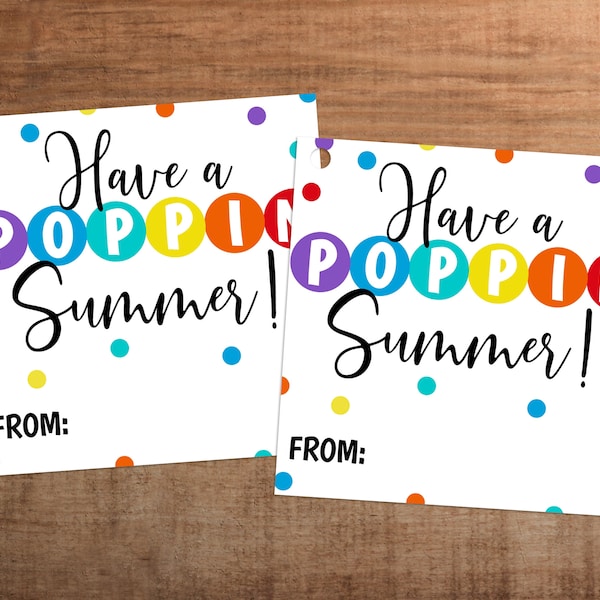 Have a
POPPIN
Summer!
FROM:
Have a
POPPIN
Summer!
FROM: